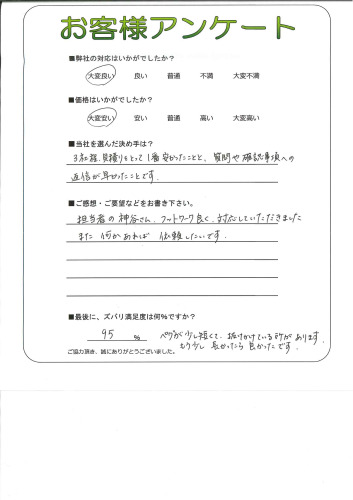 お客様アンケート
■弊社の対応はいかがでしたか？
大変良い 良い 普通 不満 大変不満
■価格はいかがでしたか？
大変安い 安い 普通 高い 大変高い
■当社を選んだ決め手は？
3社程、見積りをとって1番安かったことと、質問や確認事項への
返信が早かったことです。
■ご感想・ご要望などをお書き下さい。
担当者の神谷さん、フットワーク良く、対応していただきました
また何かあれば依頼したいです。
■最後に、ズバリ満足度は何%ですか？
95 % が少し短くて、抜けかけている所があります。
もう少し長かったら良かったです。
ご協力頂き、誠にありがとうございました。